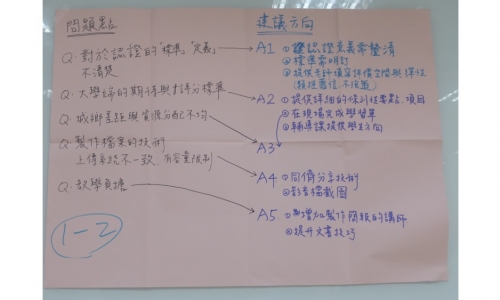 問題點
建議方向
Q. 對於認證的「標準」、「定義」
不清楚
A1 ①認證意義需釐清
②標準需明訂
③提供老師適宜評價空間與彈性
Q. 大學端的期待與評分標準
A2 ①提供詳細的條列注意點、項目
②在現場完成學習單
③輔導課提供學生方向
Q. 城鄉差距與資源分配不均
A3
Q. 製作檔案的技術
上傳系統不一致,有容量限制
A4 ①同儕分享技術
②影音檔截圖
Q. 教學負擔
A5. ①增加製作簡報的講師
②提升文書技巧
1-2